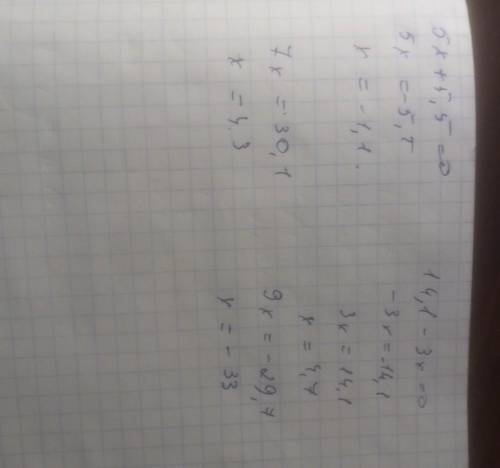 5x+5,5=0
5x=-5,5
x=-1,1.
7x=30,1
x=4,3
14,1-3x=0
-3x=-14,1
3x=14,1
x=4,7
9x=-29,7
x=-33